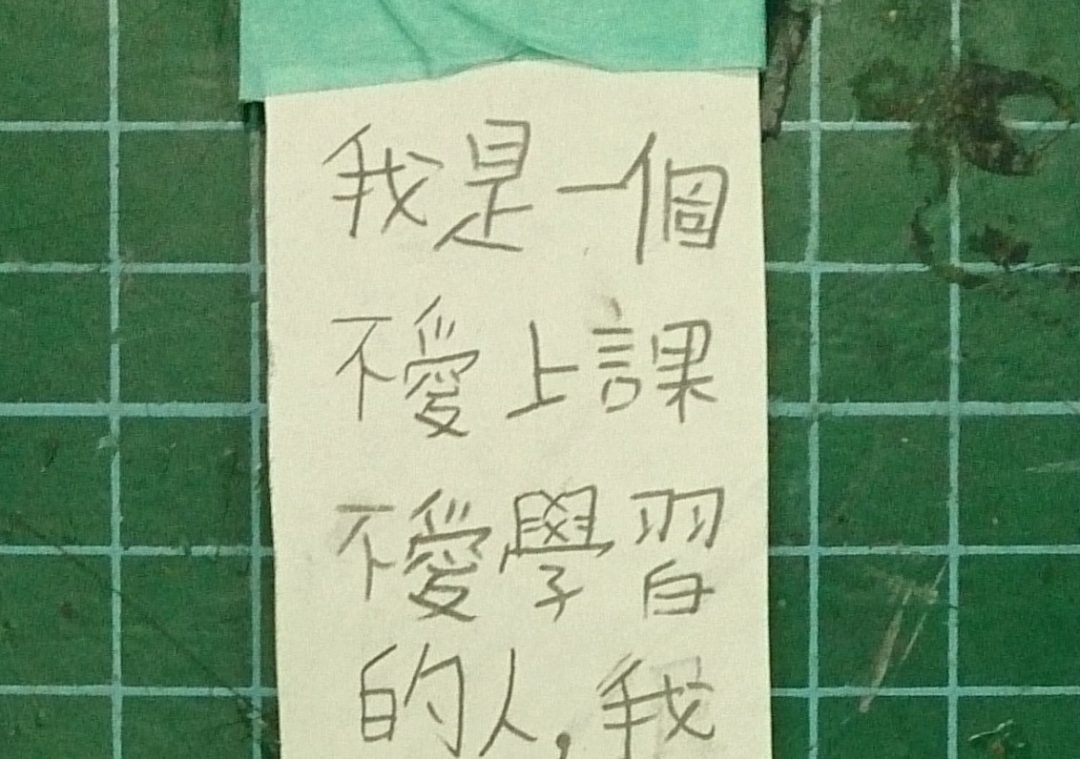 我是一個
不愛上課
不愛學習
的人,我